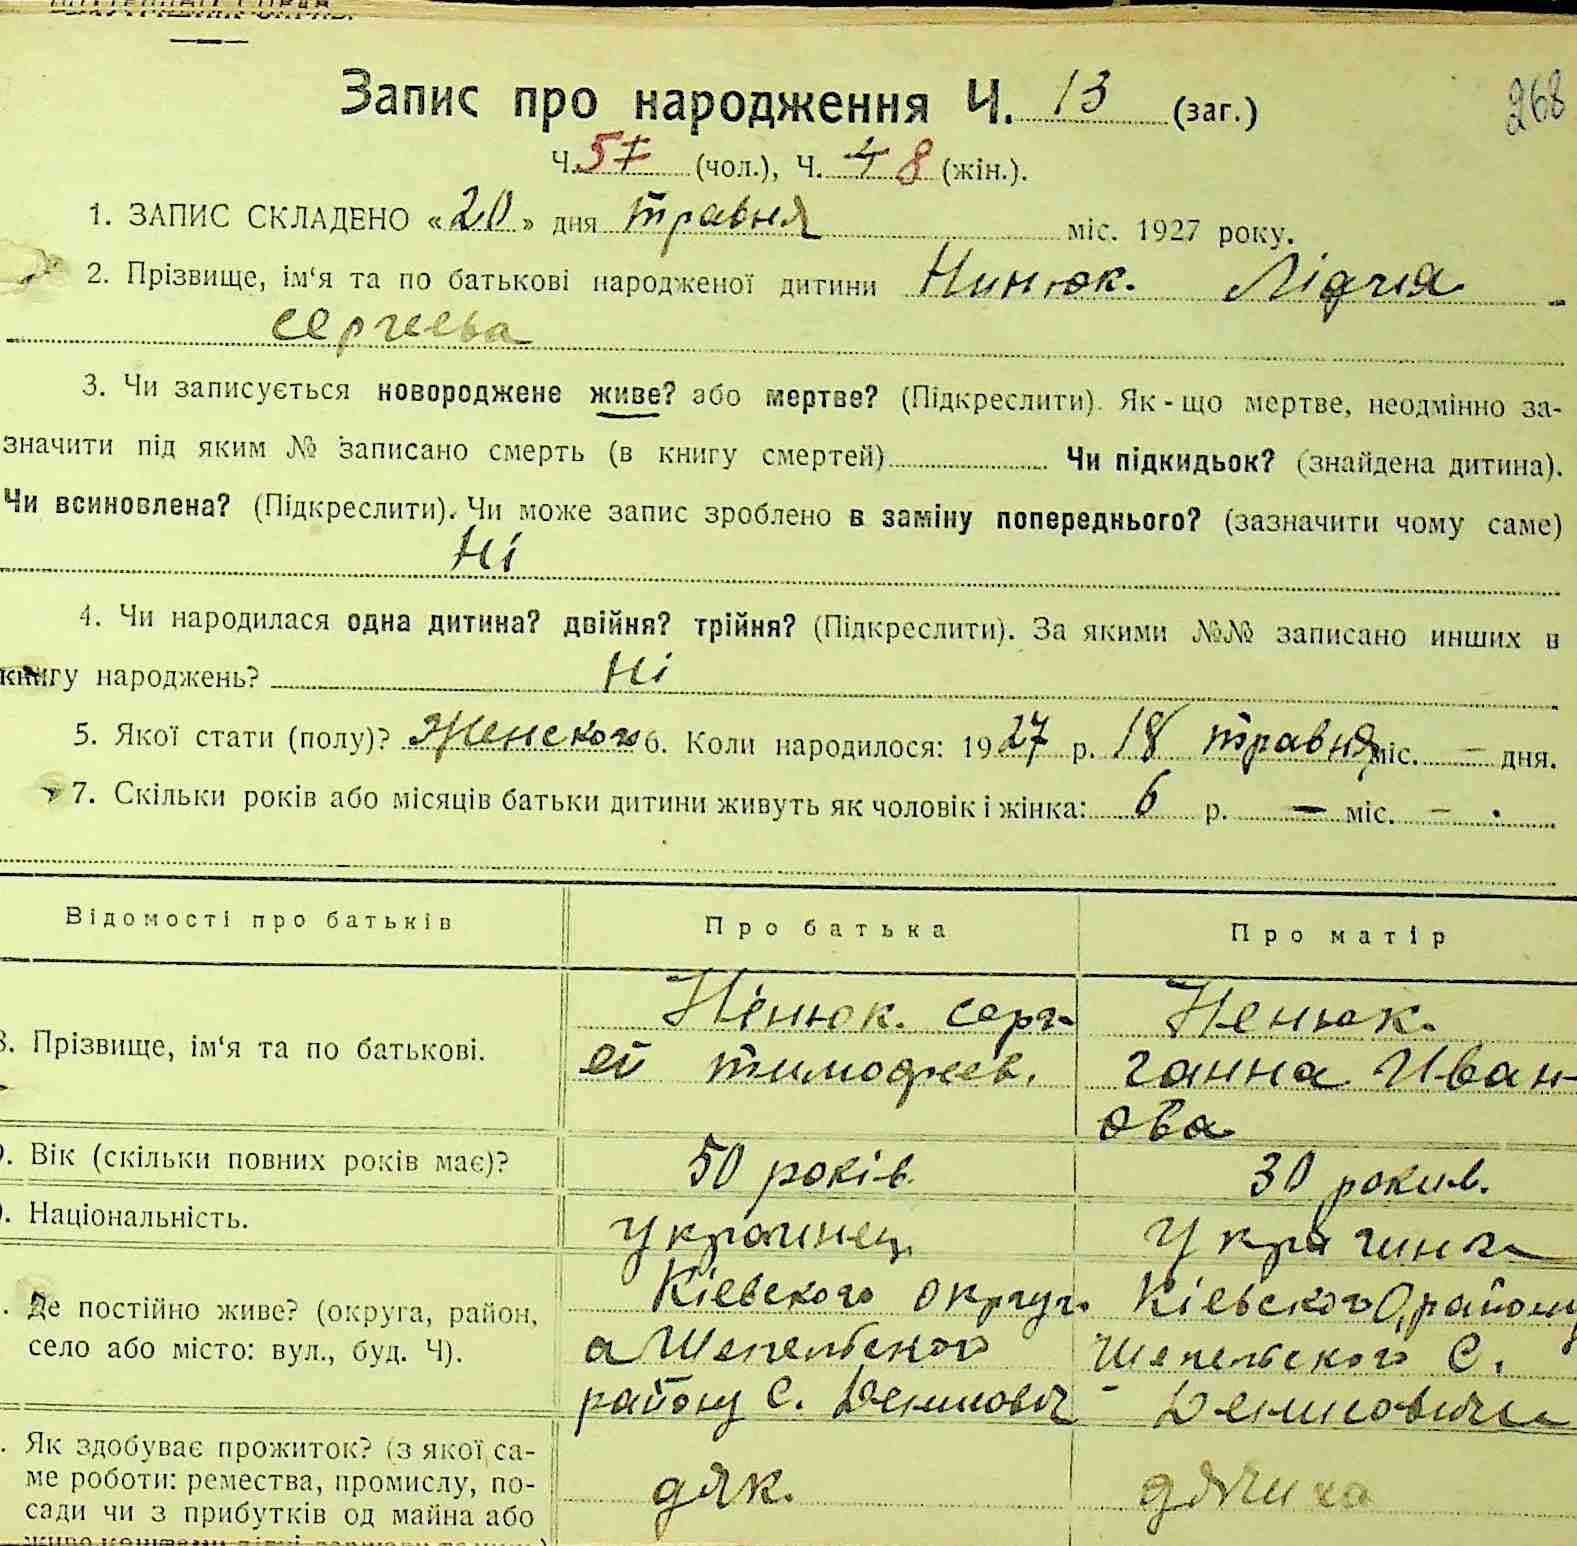 268
Запис про народження Ч. 13 (заг.)
Ч. 57 (чол.), Ч. 48 (жін.).
1. ЗАПИС СКЛАДЕНО «20» дня травня міс. 1927 року.
2. Прізвище, ім‘я та по батькові народженої дитини Нинюк. Лідчія
сергеева
3. Чи записується новороджене живе? або мертве? (Підкреслити). Як-що мертве, неодмінно за-
значити під яким № записано смерть (в книгу смертей) Чи підкидьок? (знайдена дитина).
Чи всиновлена? (Підкреслити). Чи може запис зроблено в заміну попереднього? (зазначити чому саме)
Ні
4. Чи народилася одна дитина? двійня? трійня? (Підкреслити). За якими №№ записано инших в
книгу народжень? Ні
5. Якої стати (полу)? Женского 6. Коли народилося: 1927 р. 18 травня міс. — дня.
7. Скільки років або місяців батьки дитини живуть як чоловік і жінка: 6 р. — міс. — .
Відомості про батьків Про батька Про матір
8. Прізвище, ім‘я та по батькові.
Нінюк. серг-
ей тимофеев.
Ненюк.
ганна Иван-
ова
Вік (скільки повних років має)? 50 років. 30 роки.в.
Національність. украинец. украчинка
Де постійно живе? (округа, район,
село або місто: вул., буд. Ч).
Кіевского округ.
а Шепельского
району С. Демидович
Кіевского О, району
Шепельского С.
Демидовичи
Як здобуває прожиток? (з якої са-
ме роботи: ремества, промислу, по-
сади чи з прибутків од майна або
дяк.
дячиха